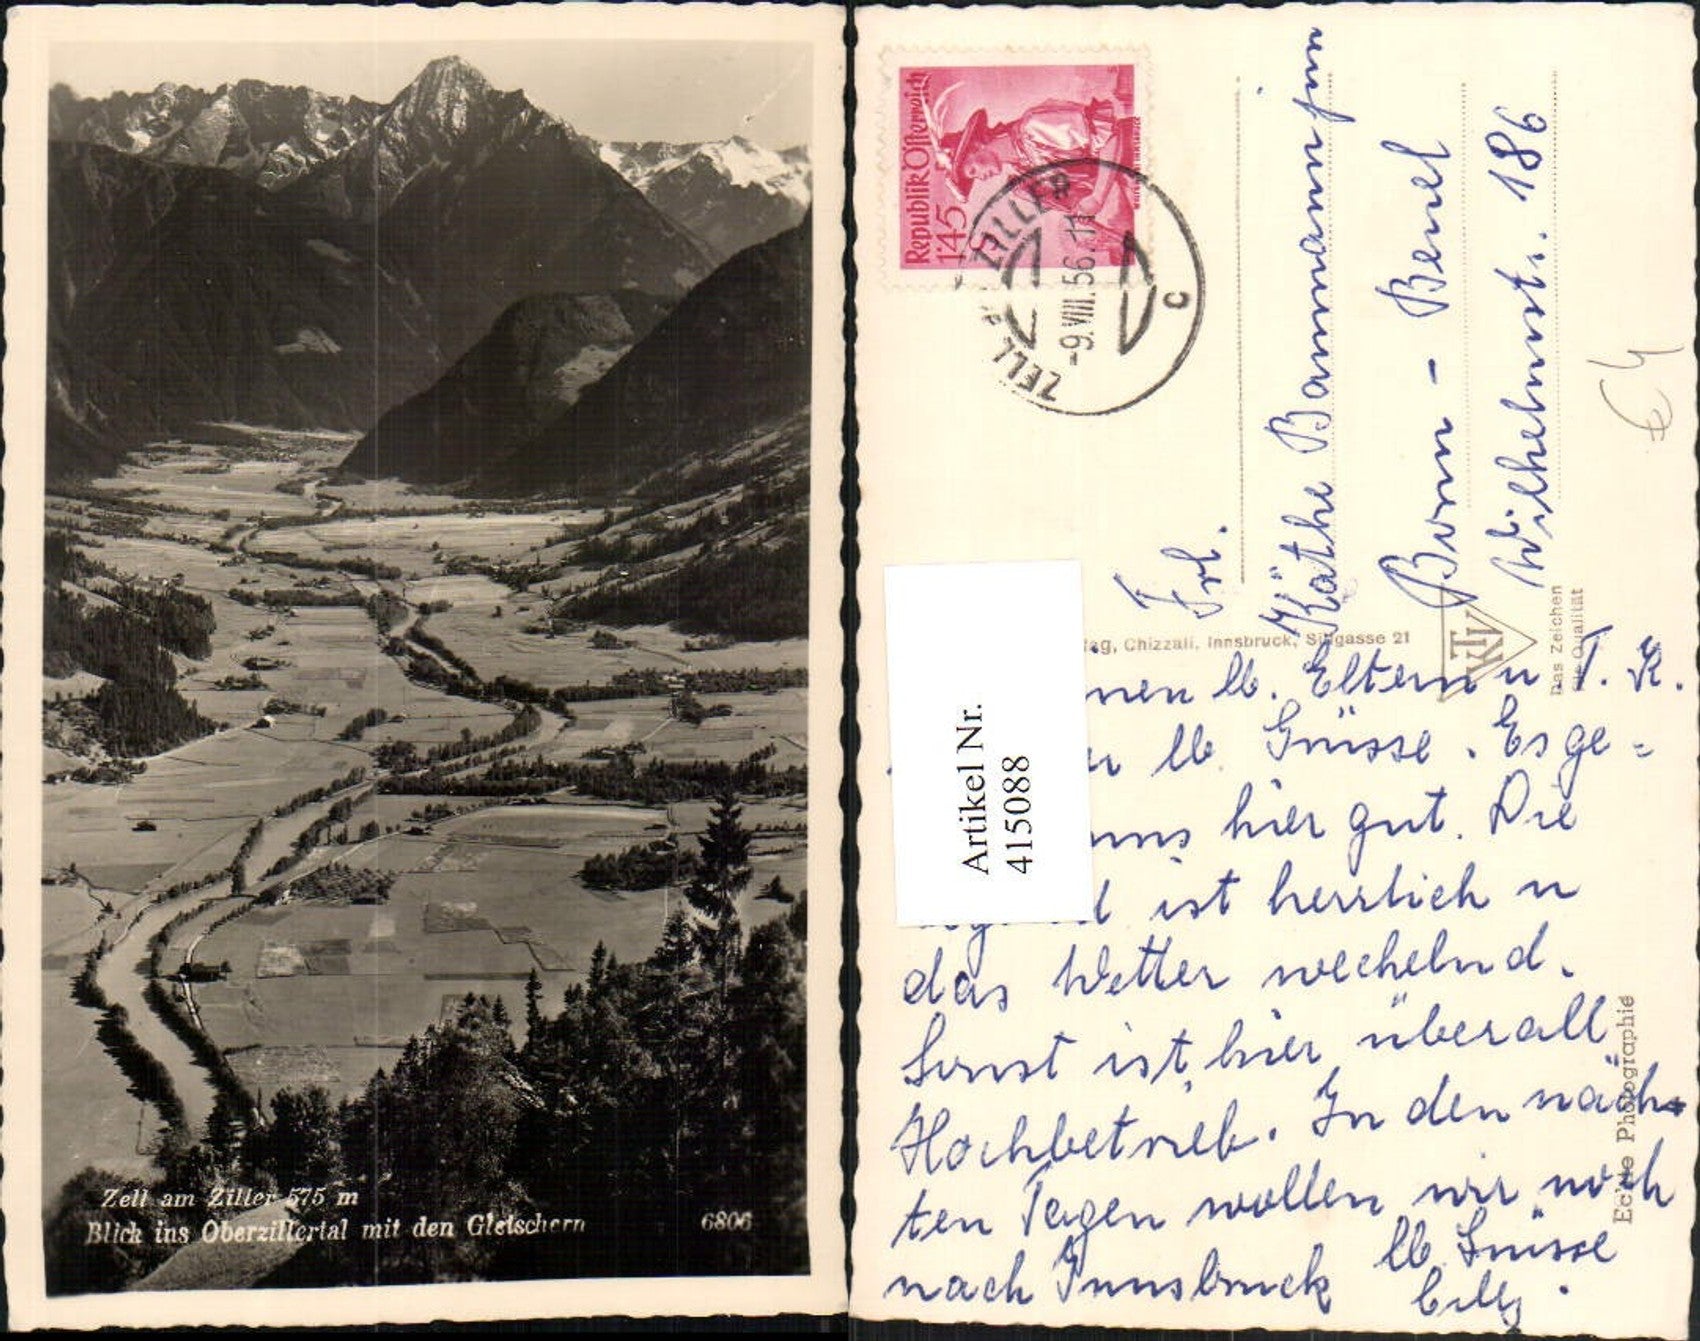 Zell am Ziller 575 m
Blick ins Oberzillertal mit den Gletschern
6806
Republik Österreich
1.45
ZELL am ZILLER
-9.VIII.56.11
c
Frl.
Käthe
Bonn - Beuel
Wilhelmst. 186
€ 4
Artikel Nr.
415088
lag, Chizzali, Innsbruck, Sillgasse 21
Das Zeichen
für Qualität
Echte Photographie
nen lb. Eltern u T. K.
lb. Grüsse. Es ge=
uns hier gut. Die
ist herrlich u
das Wetter wechelnd.
Sonst ist hier überall
Hochbetrieb. In den näch-
ten Tagen wollen wir noch
nach Innsbruck lb. Grüsse